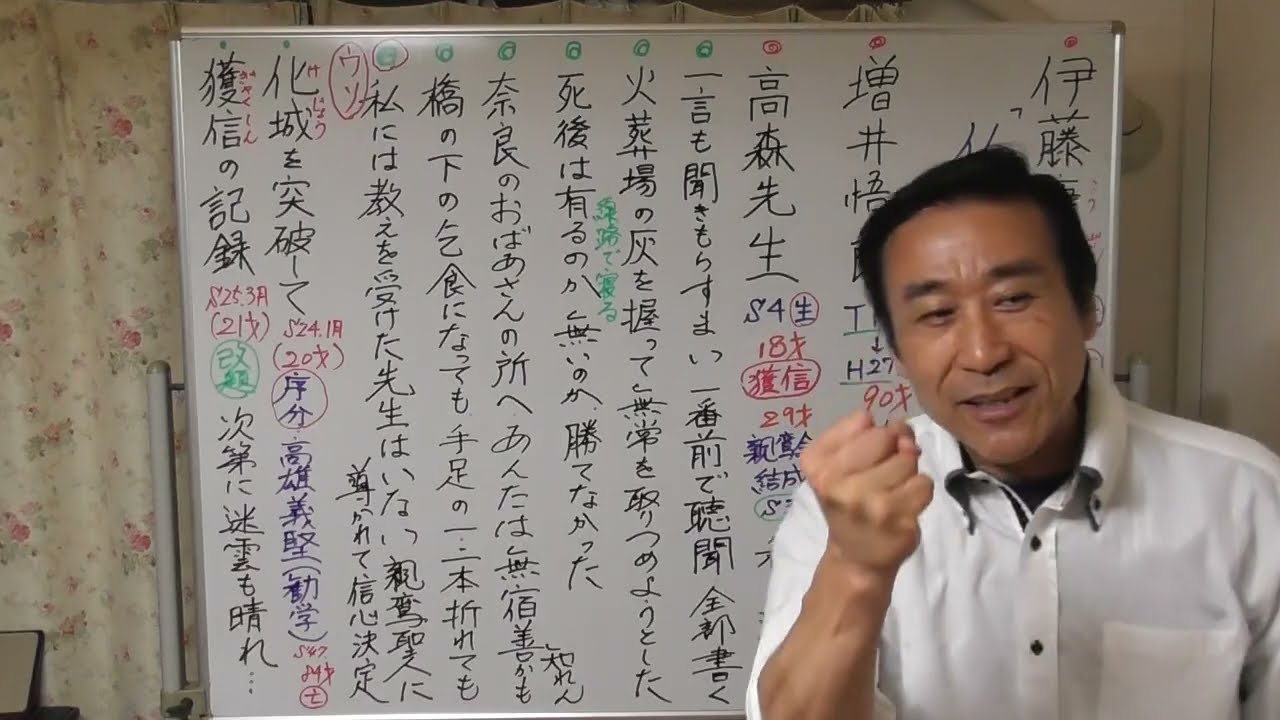 伊藤
増井悟
H27
90才
高森先生
S4生
18才
獲信
29才
親鸞会
結成
一言も聞きもらすまいっ一番前で聴聞 全部書く
火葬場の灰を握って無常を取りつめようとした
線路で寝る
死後は有るのか無いのか、勝てなかった
奈良のおばあさんの所へ、あんたは無宿善かも知れん
橋の下の乞食になっても、手足の一・二本折れても
私には教えを受けた先生はいないっ親鸞聖人に
導かれて信心決定
ウソ
化城を突破して
けじょう
S24.1月
(20才)
序分・高雄義堅(勧学)
S47
84才
獲信の記録
ぎゃくしん
S25.3月
(21才)
改題
次第に迷雲も晴れ…